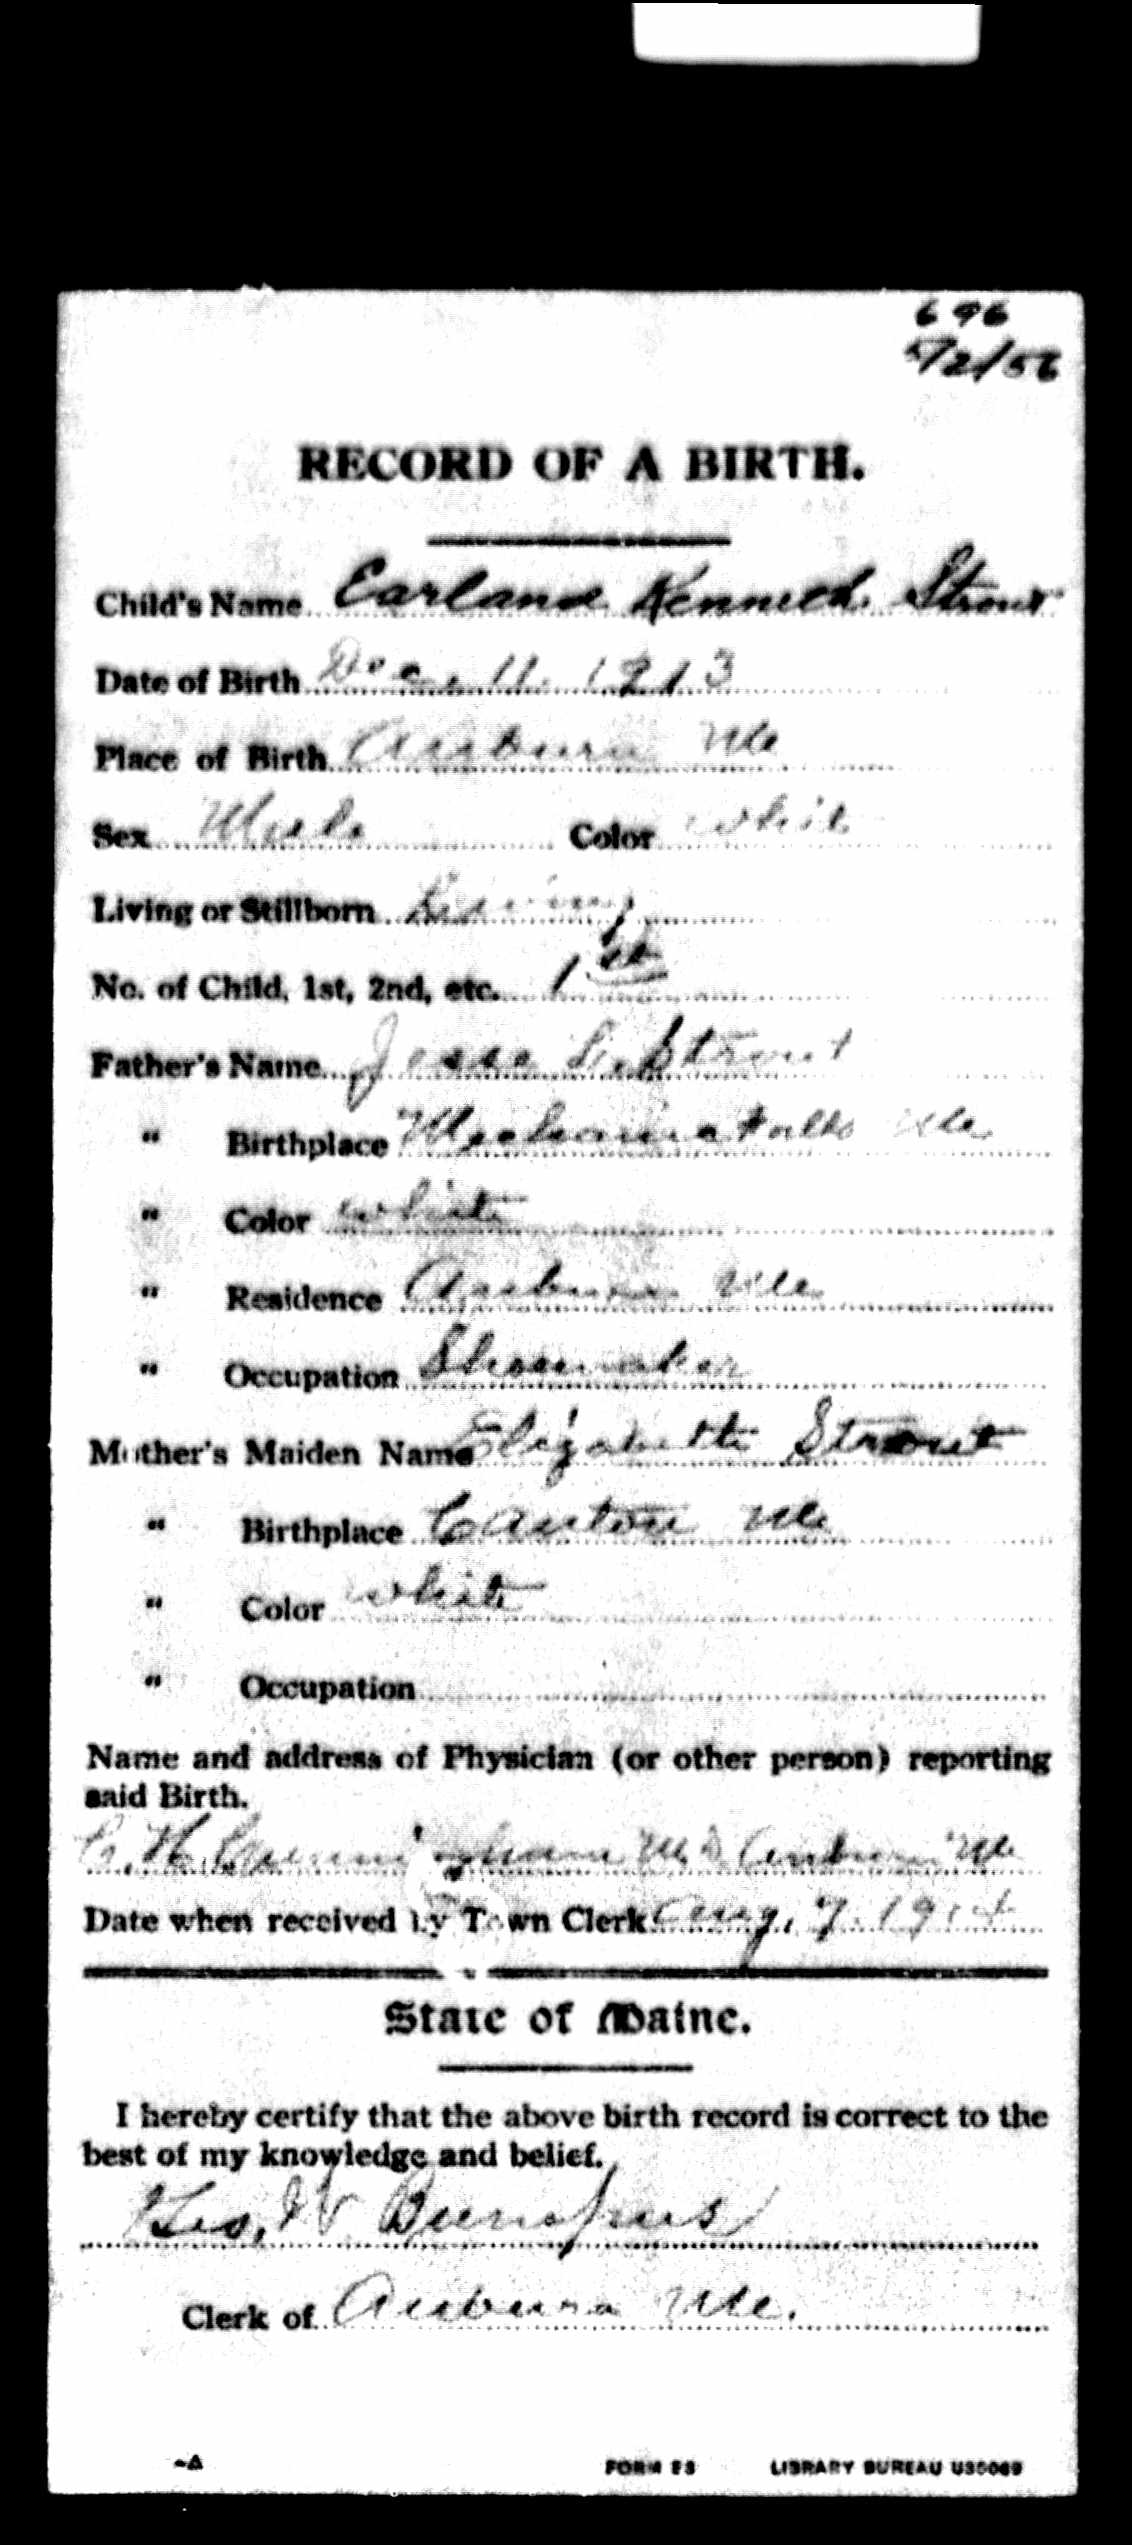 696
5/2/56
RECORD OF A BIRTH.
Child's Name Earland Kenneth Strout
Date of Birth Dec. 11. 1913
Place of Birth Auburn Me
Sex Male Color white
Living or Stillborn Living
No. of Child, 1st, 2nd, etc. 1st
Father's Name Jesse L. Strout
" Birthplace Mechanic Falls Me
" Color white
" Residence Auburn Me
" Occupation Shoemaker
Mother's Maiden Name Elizabeth Strout
" Birthplace Canton Me
" Color white
" Occupation
Name and address of Physician (or other person) reporting
said Birth.
H. Cunningham M.D Auburn Me
Date when received by Town Clerk Aug. 7. 1914
State of Maine.
I hereby certify that the above birth record is correct to the
best of my knowledge and belief.
Geo. W Bumpus
Clerk of Auburn Me.
FORM LIBRARY BUREAU